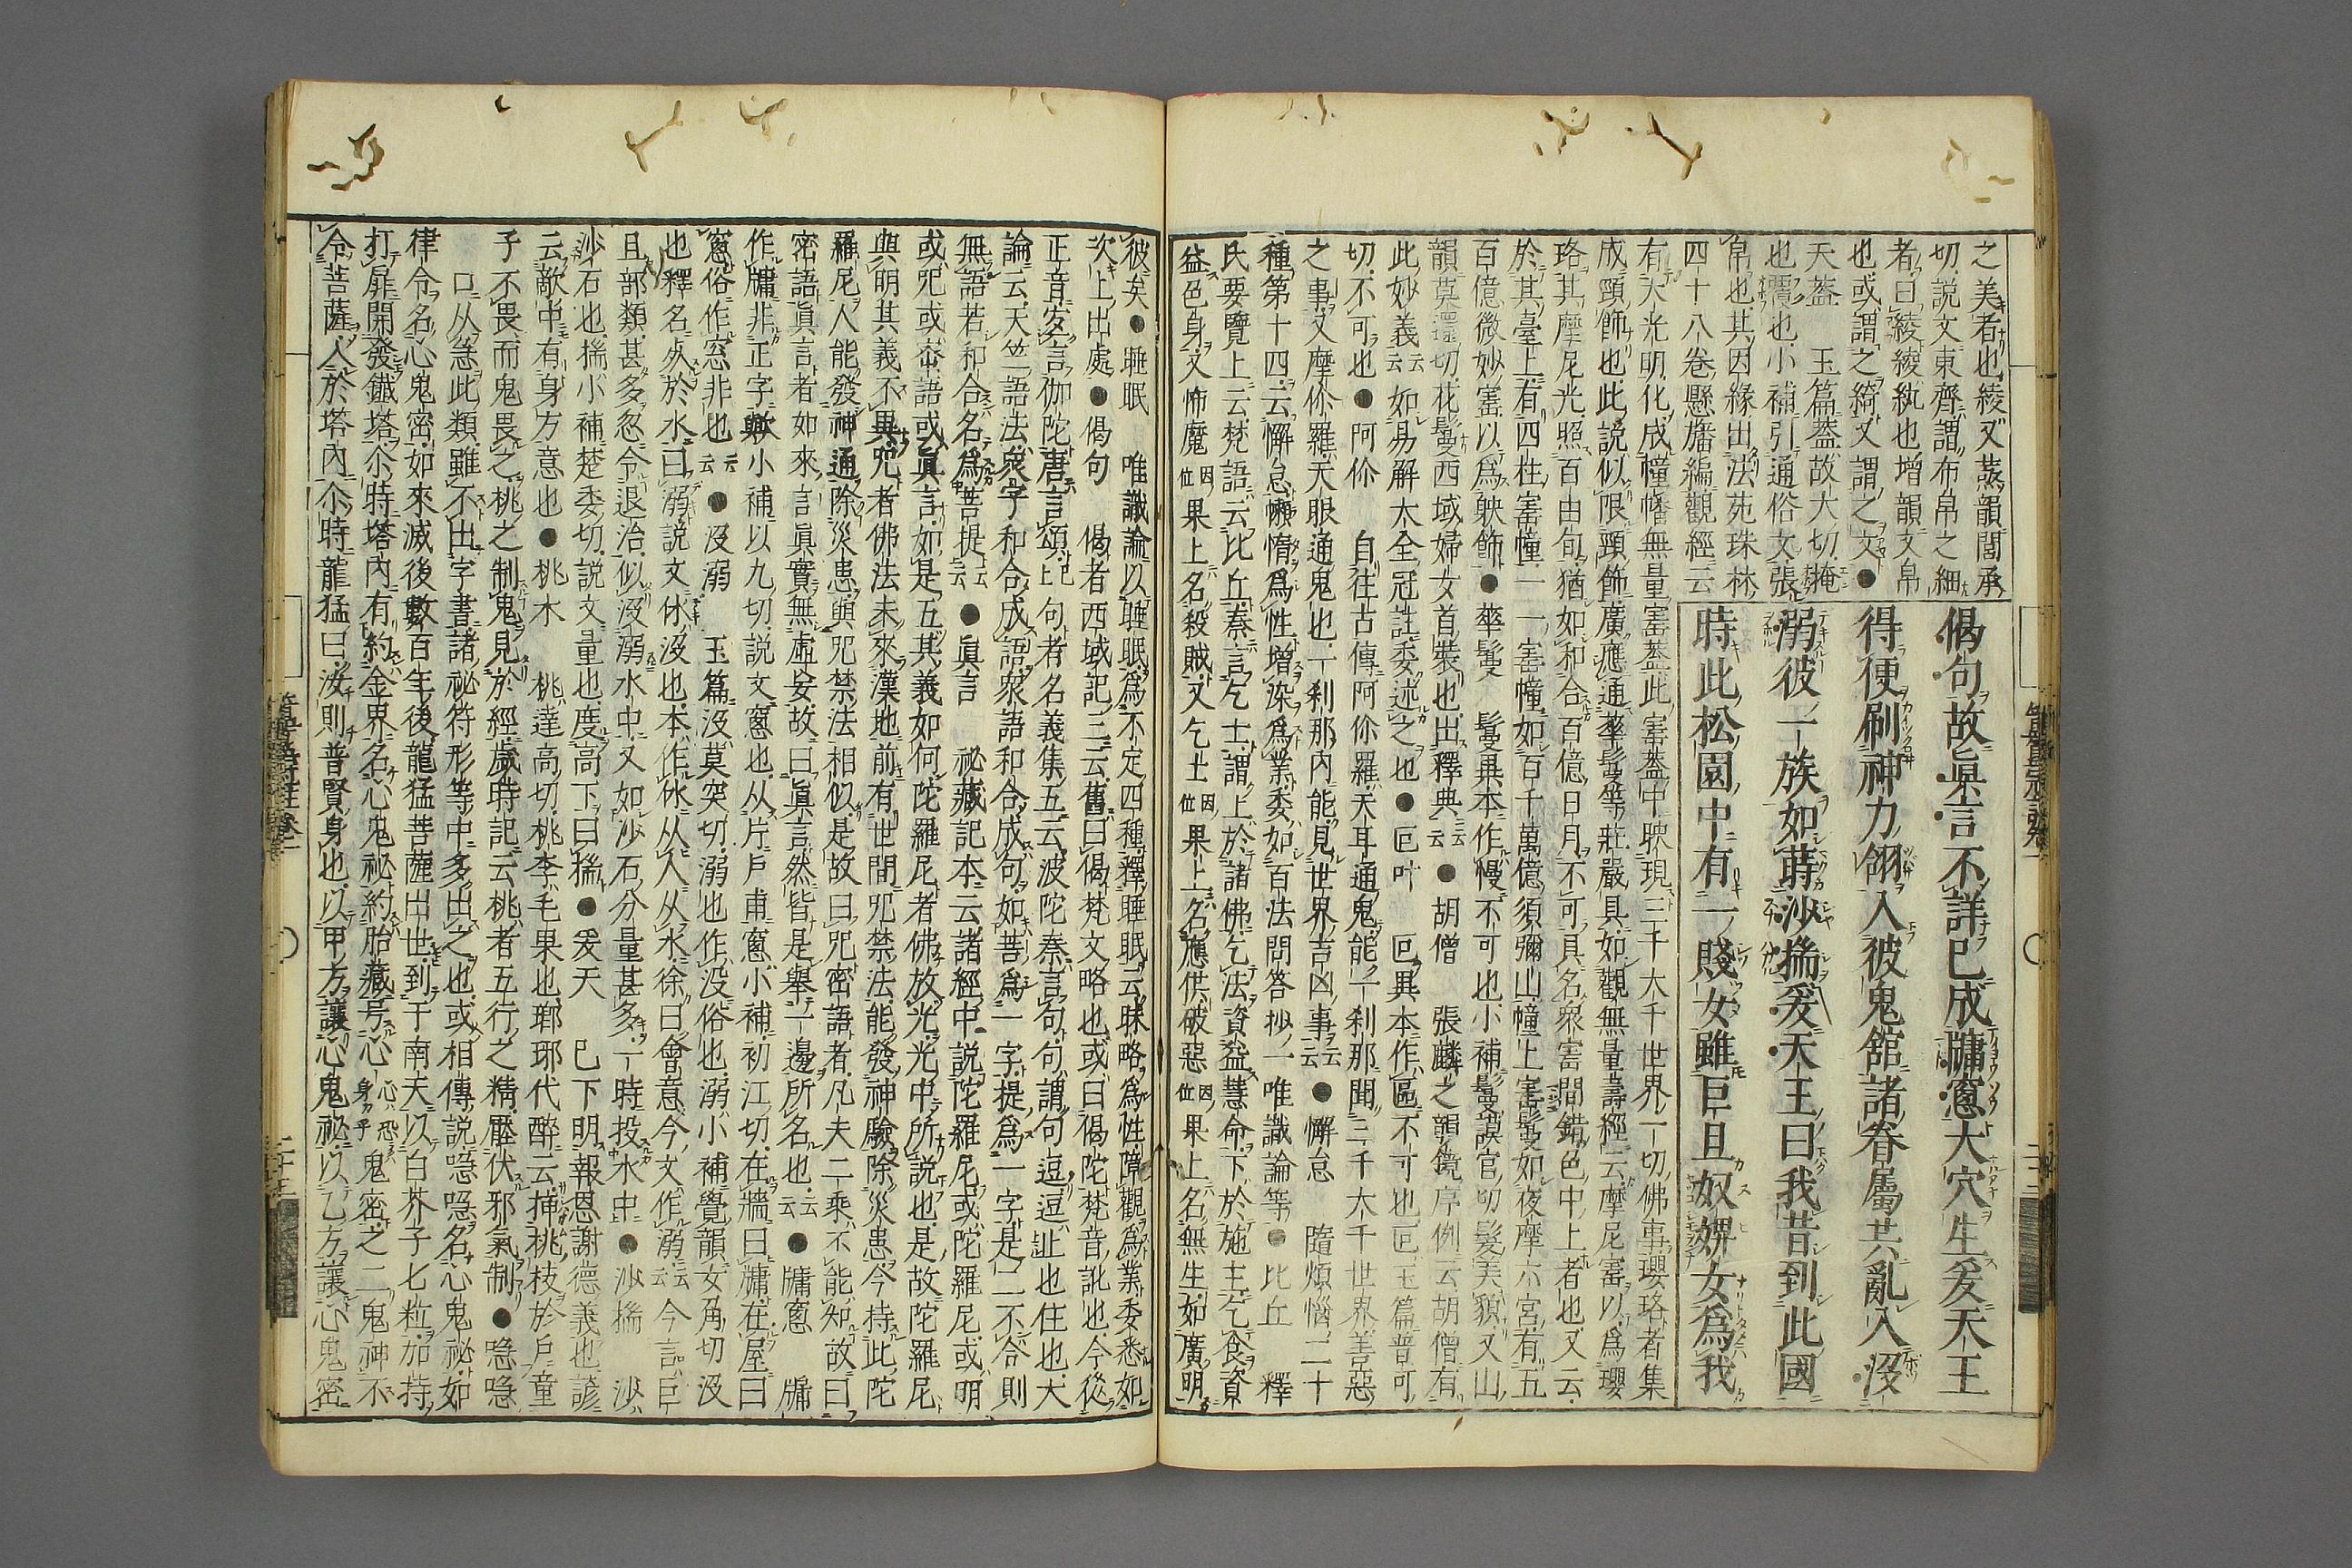 之美者也綾又蒸韻閭承
切説文東齊謂布帛之細
者曰綾綾紈也増韻文帛
也或謂之綺又謂之文●
天蓋 玉篇蓋故大切掩
也覆也小補引通俗文張
帛也其因縁出法苑珠林
四十八卷懸旛編觀經云
偈句故眞言不詳已成牗窻大穴生爰天王
得便刷神力翎入彼鬼舘諸眷屬共亂入沒
溺彼一族如蒔沙揣爰天王曰我昔到此國
時此松園中有一賤女雖巨且奴婢女爲我
有大光明化成幢幡無量寳蓋此寳蓋中映現三千大千世界一切佛事瓔珞者集
成頸飾也此説似限頸飾廣應通華鬘等莊嚴具如觀無量壽經云摩尼寳以爲瓔
珞其摩尼光照百由旬猶如和合百億日月不可具名衆寳間錯色中上者也又云
於其臺上有四柱寳幢一一寳幢如百千萬億須彌山幢上寳鬘如夜摩六宮有五
百億微妙寳以爲映飾●華鬘 鬘異本作慢不可也小補鬘謨官切髮美貌又山
韻莫還切花鬘西域婦女首裝也出釋典云云●胡僧 張麟之韻鏡序例云胡僧有
此妙義云云如易解大全冠註委述之也●叵叶 叵異本作區不可也叵玉篇普可
切不可也●阿伱 自往古傳阿伱羅天耳通鬼能一刹那聞三千大千世界善惡
之事又摩伱羅天眼通鬼也一刹那内能見世界吉凶事云云●懈怠 隨煩惱二十
種第十四云懈怠嬾惰爲性増染爲業委如百法問答抄一唯識論等●比丘 釋
氏要覽上云梵語云比丘秦言乞士謂上於諸佛乞法資益慧命下於施主乞食資
益色身又怖魔因位果上名殺賊又乞士因位果上名應供破惡因位果上名無生如廣明
彼矣●睡眠 唯識論以睡眠爲不定四種釋睡眠云昧略爲性障觀爲業委悉如
次上出處●偈句 偈者西域記三云舊曰偈梵文略也或曰偈陀梵音訛也今從
正音宜言伽陀唐言頌已上句者名義集五云波陀秦言句句謂句逗逗止也住也大
論云天竺語法衆字和合成語衆語和合成句如菩爲一字提爲一字是二不合則
無語若和合名爲菩提云云●眞言 祕藏記本云諸經中説陀羅尼或陀羅尼或明
或咒或密語或眞言如是五其義如何陀羅尼者佛放光光中所説也是故陀羅尼
與明其義不異咒者佛法未來漢地前有世間咒禁法能發神驗除災患今持此陀
羅尼人能發神通除災患與咒禁法相似是故曰咒密語者凡夫二乘不能知故曰
密語眞言者如來言眞實無虚妄故曰眞言然皆是舉一邊所名也云云●牗窻 牗
作牗非正字歟小補以九切説文窻也从片戸甫窻小補初江切在牆曰牗在屋曰
窻俗作窓非也云云●沒溺 玉篇沒莫突切溺也作没俗也溺小補覺韻女角切沒
也釋名死於水曰溺説文㲻沒也本作㲻从人从水徐曰會意今文作溺云云今言巨
且部類甚多忽令退治似沒溺水中又如沙石分量甚多一時投水中●沙揣 沙
沙石也揣小補楚委切説文量也度高下曰揣●爰天 已下明報恩謝德義也諺
云敵中有身方意也●桃木 桃達高切桃李毛果也瑯琊代醉云挿桃枝於戸童
子不畏而鬼畏之桃之制鬼見於經歳時記云桃者五行之精壓伏邪氣制●喼喼
口从急此類雖不出字書諸祕符形等中多出之也或相傳説喼喼名心鬼祕如
律令名心鬼密如來滅後數百年後龍猛菩薩出世到于南天以白芥子七粒加持
打扉開發鐵塔尒時塔内有約金界名心鬼祕約胎藏号心心恐身カ乎鬼密之二鬼神不
令菩薩人於塔内尒時龍猛曰汝則普賢身也以甲方讓心鬼祕以乙方讓心鬼密